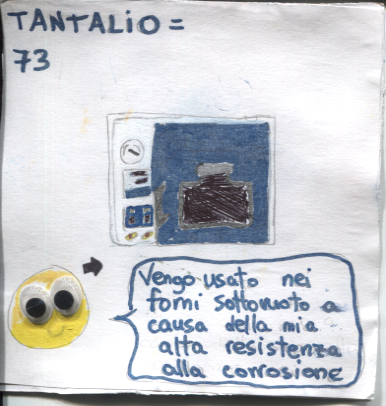 TANTALiO =
73
Vengo usato nei
forni sottovuoto a
causa della mia
alta resistenza
alla corrosione